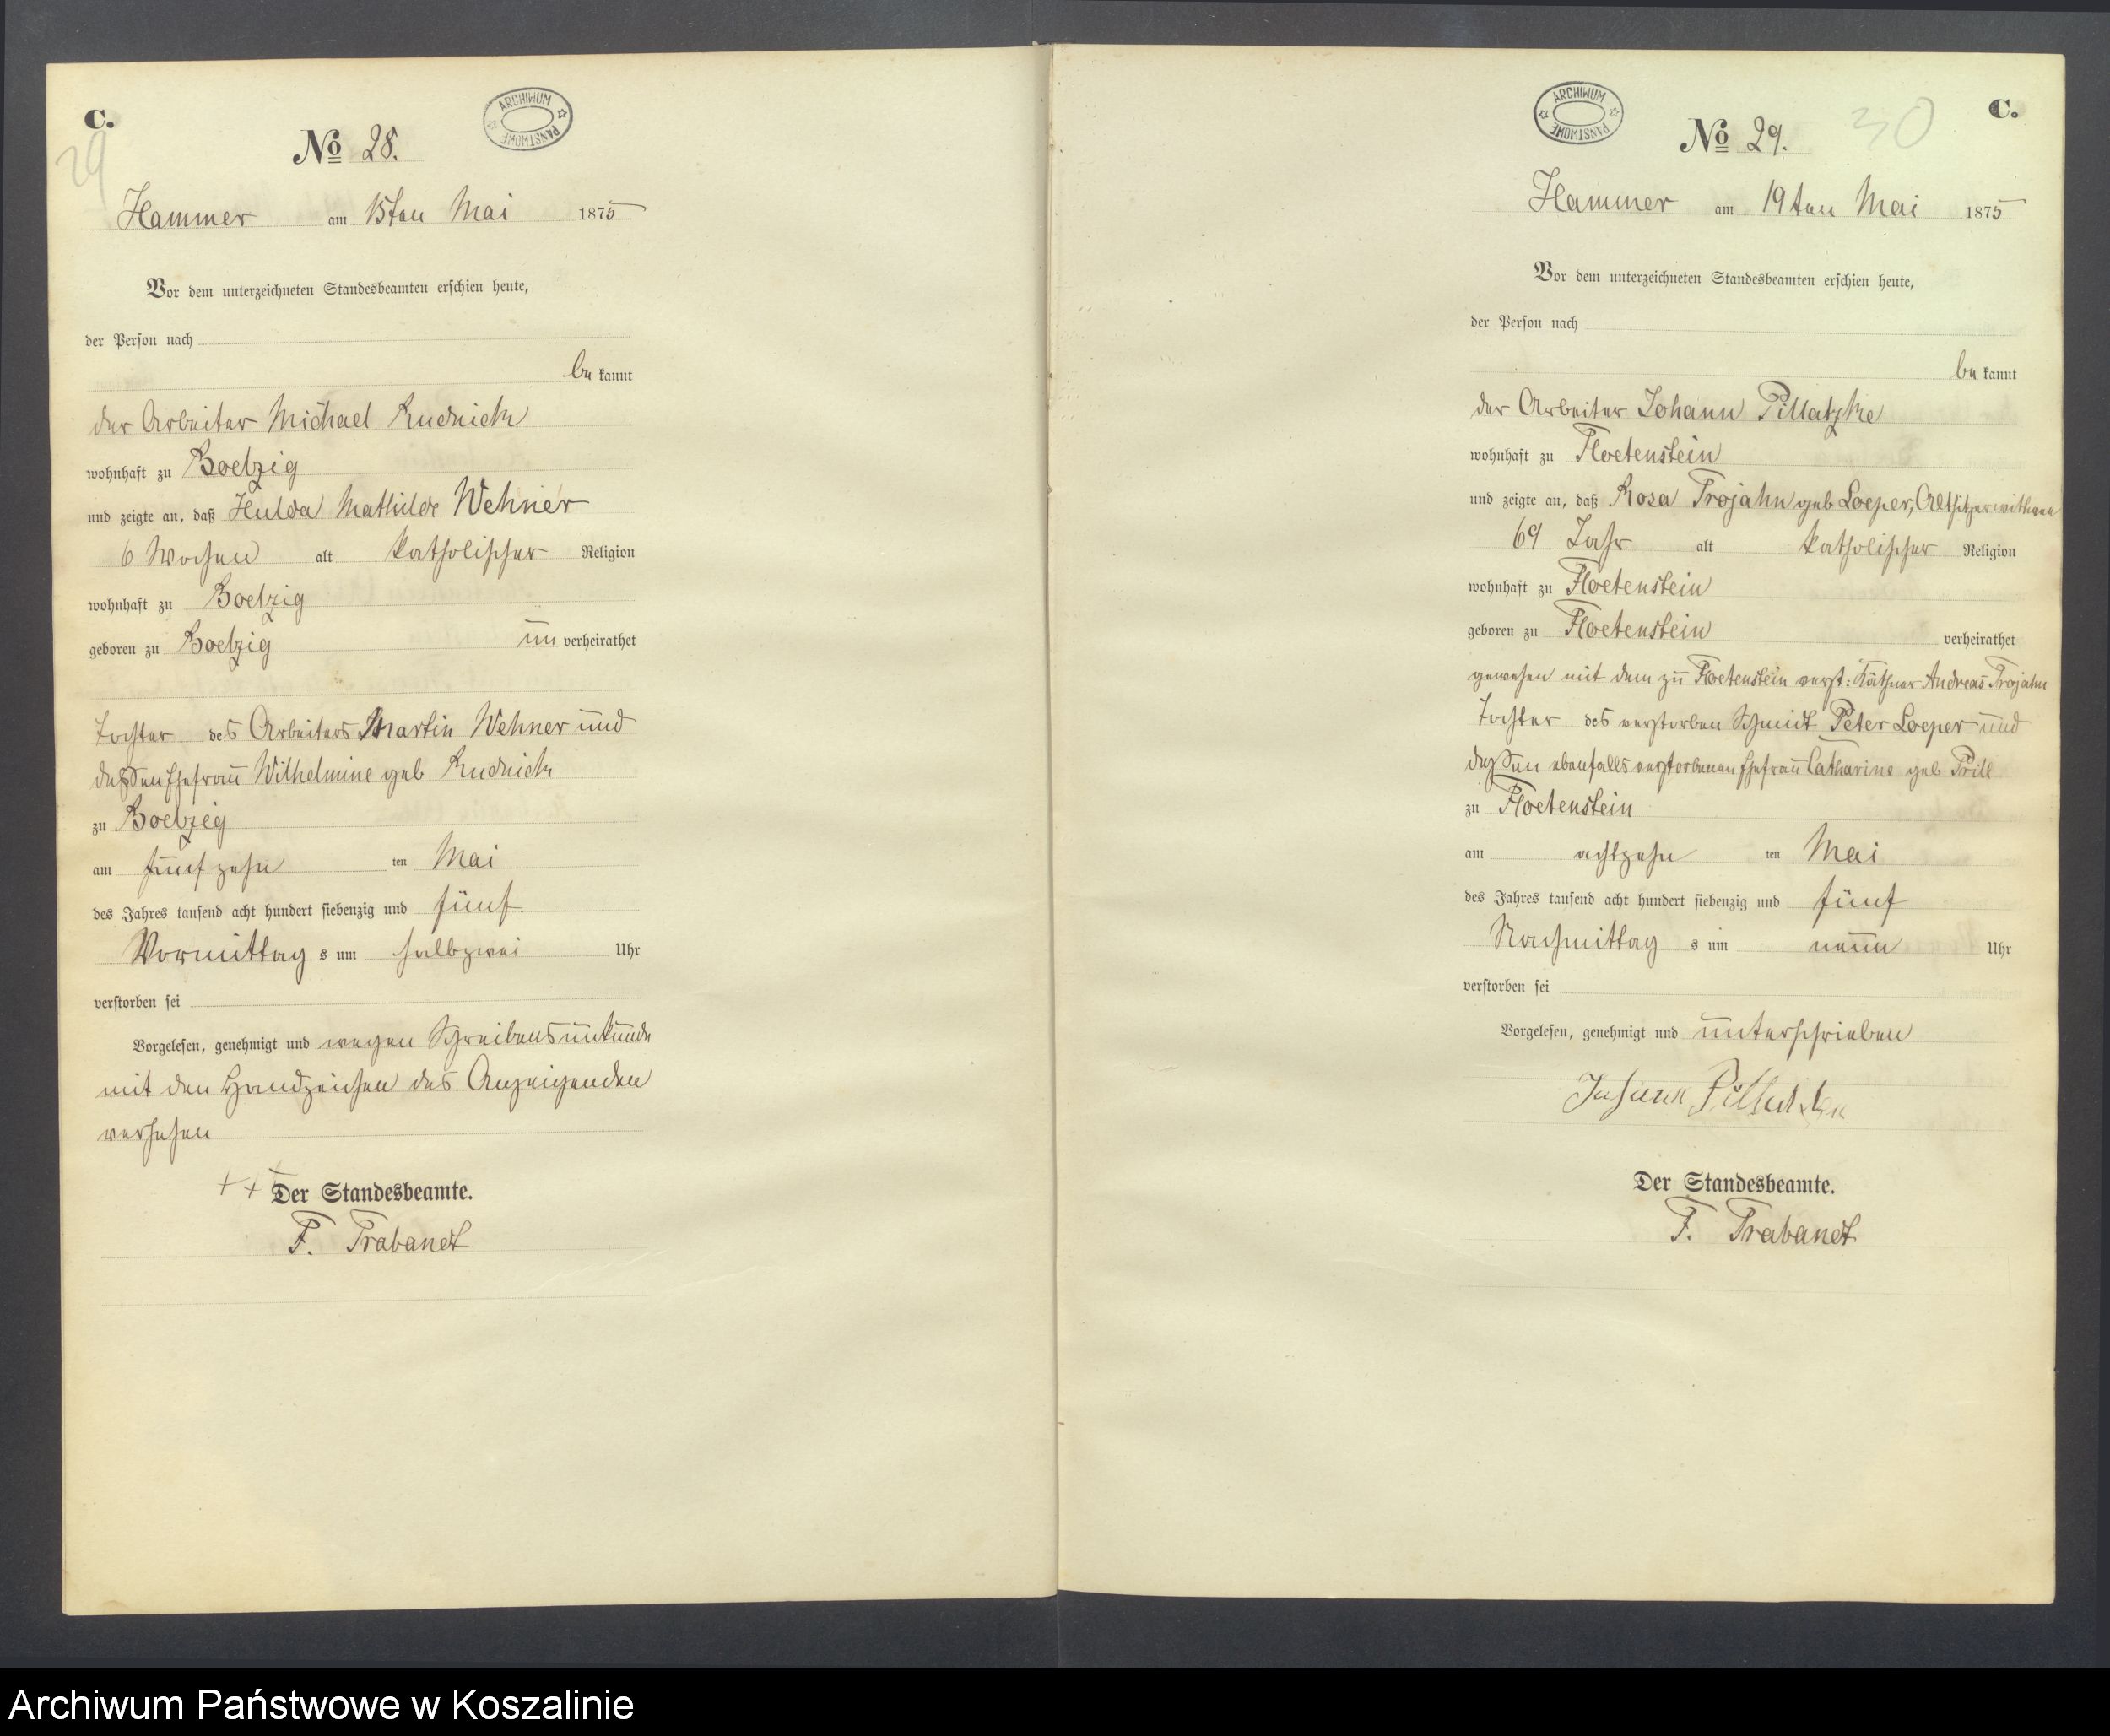 C.
29
No 28.
ARCHIWUM PAŃSTWOWE
Hammer am 15ten Mai 1875
Vor dem unterzeichneten Standesbeamten erschien heute,
der Person nach
be kannt
der Arbeiter Michael Rudnick
wohnhaft zu Boelzig
und zeigte an, daß Hulda Mathilde Wehner
6 Wochen alt katholischer Religion
wohnhaft zu Boelzig
geboren zu Boelzig un verheirathet
Tochter des Arbeiters Martin Wehner und
dessen Ehefrau Wilhelmine geb Rudnick
zu Boelzig
am fünfzehn ten Mai
des Jahres tausend acht hundert siebenzig und fünf
Vormittag s um halbzwei Uhr
verstorben sei
Vorgelesen, genehmigt und wegen Schreibensunkunde
mit den Handzeichen des Anzeigenden
versehen
+ + +
Der Standesbeamte.
F. Trabandt
C.
30
No 29.
ARCHIWUM PAŃSTWOWE
Hammer am 19ten Mai 1875
Vor dem unterzeichneten Standesbeamten erschien heute,
der Person nach
be kannt
der Arbeiter Johann Pillatzke
wohnhaft zu Floetenstein
und zeigte an, daß Rosa Trojahn geb Loeper, Altsitzerwithwe
69 Jahr alt katholischer Religion
wohnhaft zu Floetenstein
geboren zu Floetenstein verheirathet
gewesen mit dem zu Floetenstein verst: Käthner Andreas Trojahn
Tochter des verstorben Schmidt Peter Loeper und
dessen ebenfalls verstorbenen Ehefrau Catharine geb Prill
zu Floetenstein
am achtzehn ten Mai
des Jahres tausend acht hundert siebenzig und fünf
Nachmittag s um neun Uhr
verstorben sei
Vorgelesen, genehmigt und unterschrieben
Johann
Der Standesbeamte.
F. Trabandt
Archiwum Państwowe w Koszalinie